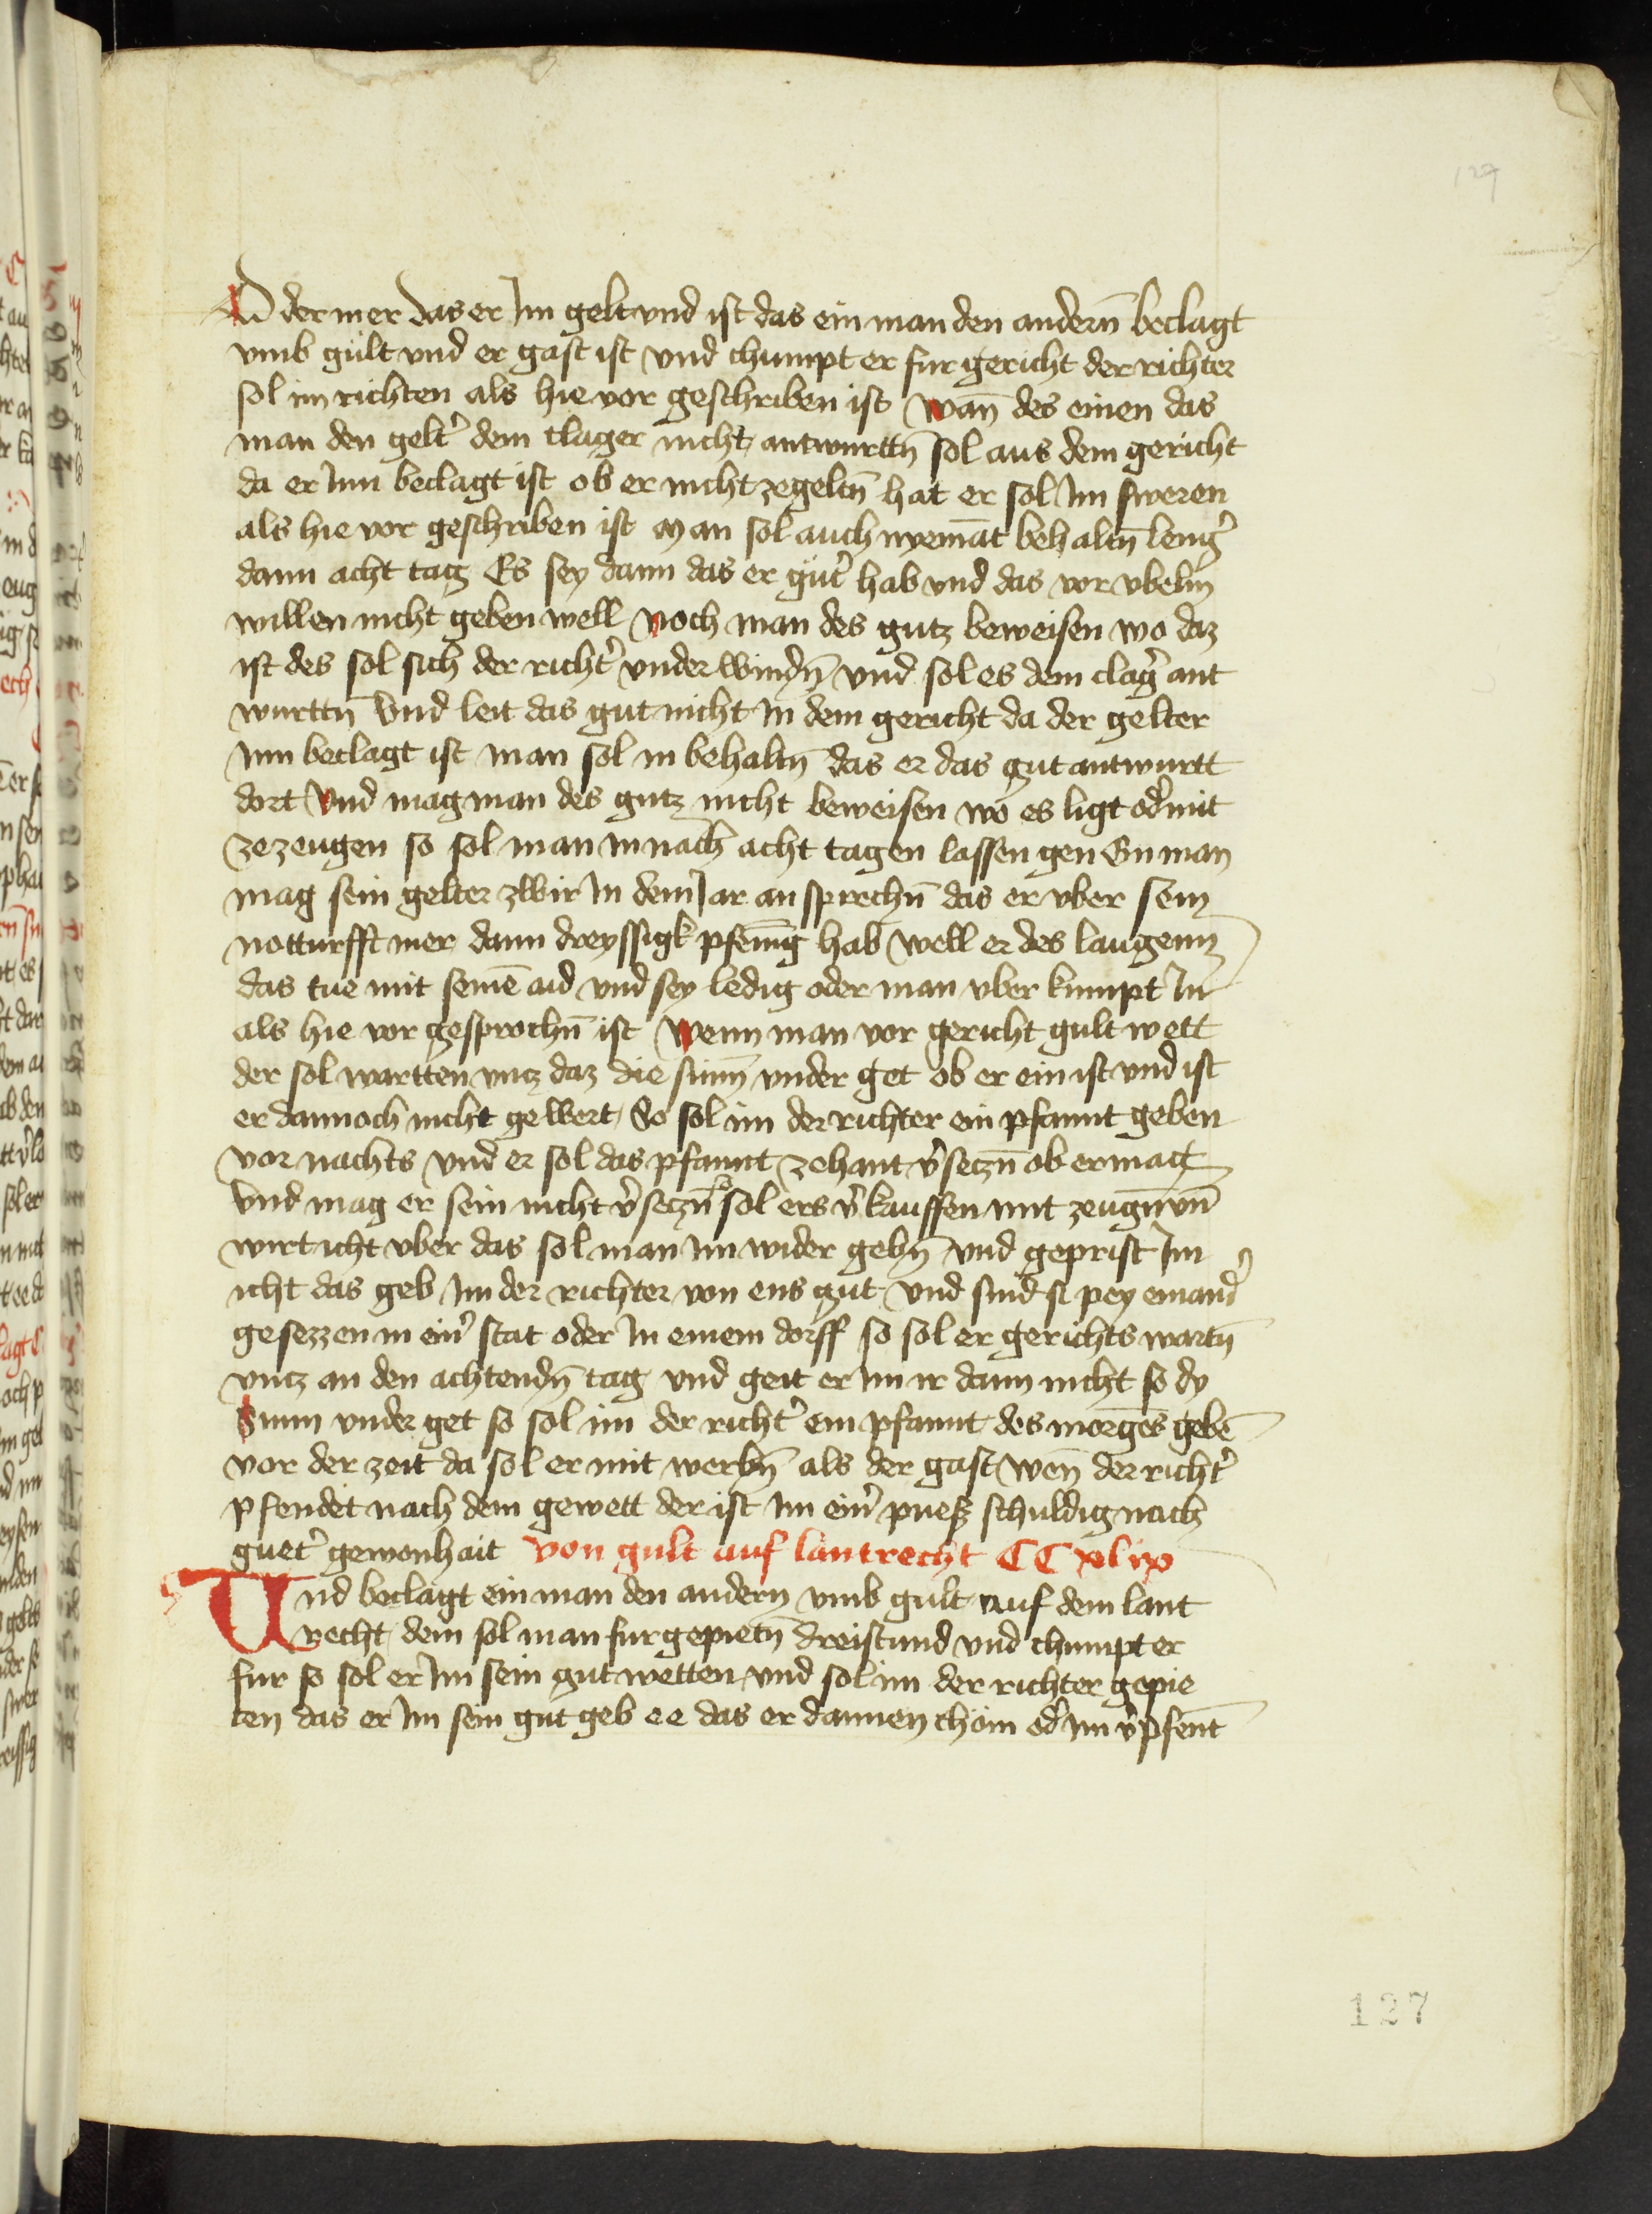 127
Oder mer das er Im gelt vnd ist das ein man den andern̄ beclagt
vmb gült vnd er gast ist vnd chumpt er fur gericht der richter
sol im richten als hie vor geschriben ist wan̄ des einen das
man den gelt͛ dem clager nicht antwurttn̄ sol aus dem gericht
da er Inn beclagt ist ob er nicht zegeltn̄ hat er sol Im sweren
als hie vor geschriben ist Man sol auch nyemāt behaltn̄ leng͛
dann acht tag Es sey dann das er güt͛ hab vnd das vor vbelm̄
willen nicht geben well noch man des gutz beweisen wo daz
ist des sol sich der richt͛ vnderwindn̄ vnd sol es dem clag͛ ant
wurttn̄ Vnd leit das gut nicht In dem gericht da der gelter
Inn beclagt ist man sol in behaltn̄ das er das gut antwurtt
dort Vnd mag man des gutz nicht beweisen wo es ligt od͛ mit
ze zeugen so sol man in nach acht tagen lassen gen Ein man
mag sein gelter zwir In dem Jar an sprechn̄ das er vber sein
notturfft mer dann dreyssigk pfen̄ig hab well er des laugenn
das tue mit seinē aid vnd sey ledig oder man vber kumpt In
als hie vor gesprochn̄ ist Wenn man vor gericht gult wett
der sol wartten vncz daz die sunn̄ vnder get ob er ein ist vnd ist
er dannoch nicht gewert So sol im der richter ein pfannt geben
vor nachts vnd er sol das pfannt zehant v͛seczn̄ ob er mag
Vnd mag er sein nicht v͛seczn̄ so sol ers v͛kauffen mit zeugn̄ vn̄
wirt icht vber das sol man im wider gebn̄ Vnd geprist Im
icht das geb Im der richter von ens gut Vnd sind si pey einand͛
gesezzen in ein͛ stat oder In einem dorff so sol er gerichts wartn̄
vncz an den achtendn̄ tag Vnd geit er im ir dann nicht so dy
Sunn vnder get so sol im der richt͛ ein pfannt des morgēs gebē
vor der zeit da sol er mit werbn̄ als der gast wen̄ der richt͛
pfendet nach dem gewett der ist Im ein͛ puesz schuldig nach
guet͛ gewonhait Von gult auf lantrecht CC xlix
Vnd beclagt ein man den andern vmb gült auf dem lant
recht dem sol man fur gepietn̄ dreistund vnd chumpt er
fur so sol er Im sein gut wetten vnd sol im der richter gepie
ten das er Im sein gut geb ee das er dannen chöm od͛ Im v͛pfent
127